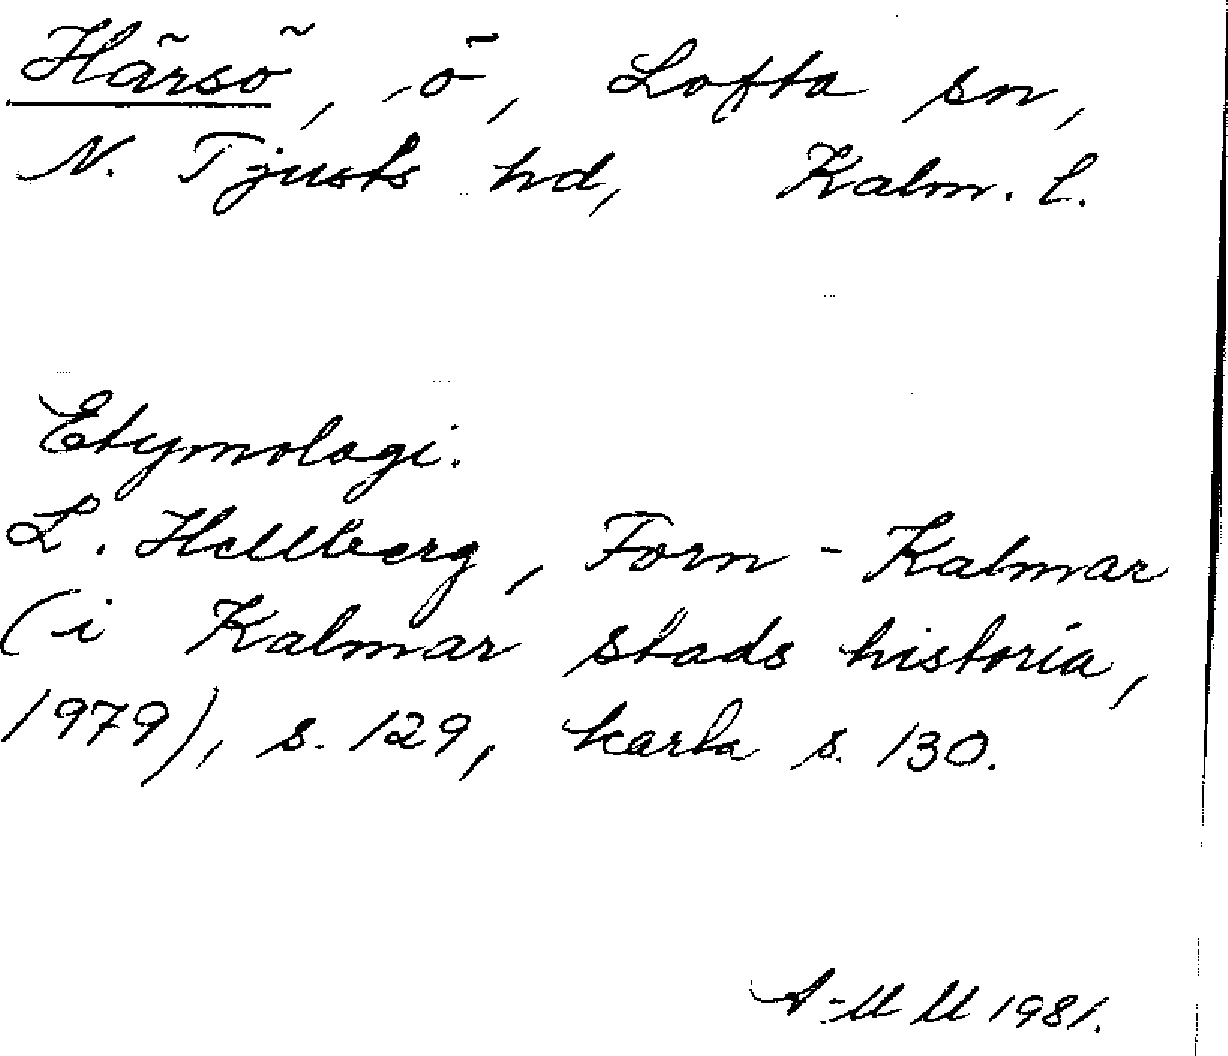 Härsö, -ö, Lofta sn,
N. Tjusts hd, Kalm. l.
Etymologi.
L. Hellberg, Forn-Kalmar
(i Kalmar stads historia,
1979), s. 129, karta s. 130.
A-M M 1981.